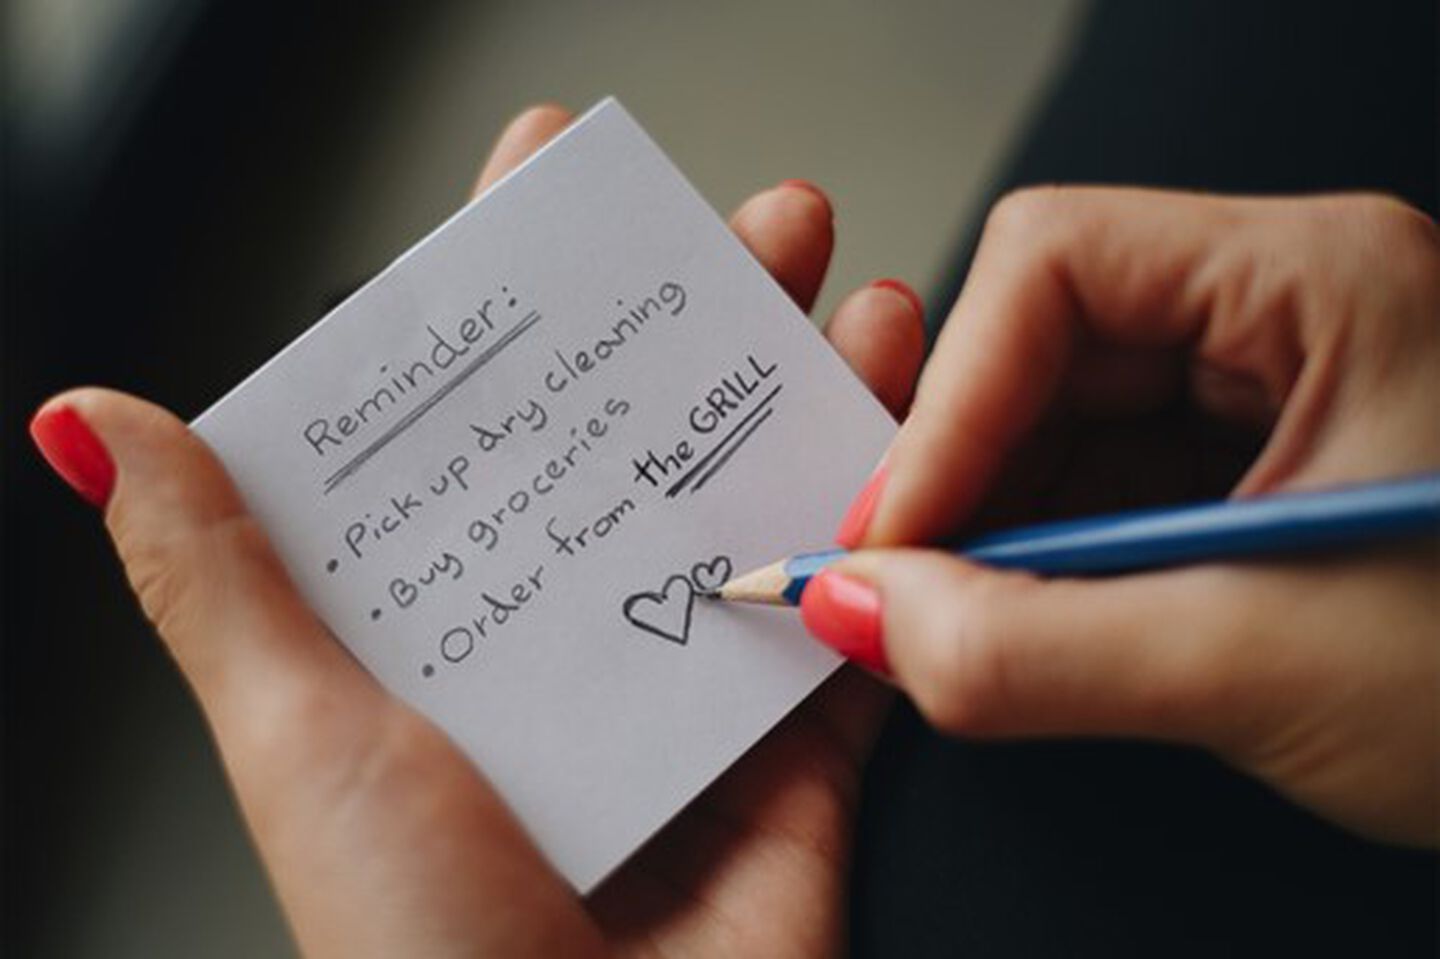 Reminder:
• Pick up dry cleaning
• Buy groceries
• Order from the GRILL